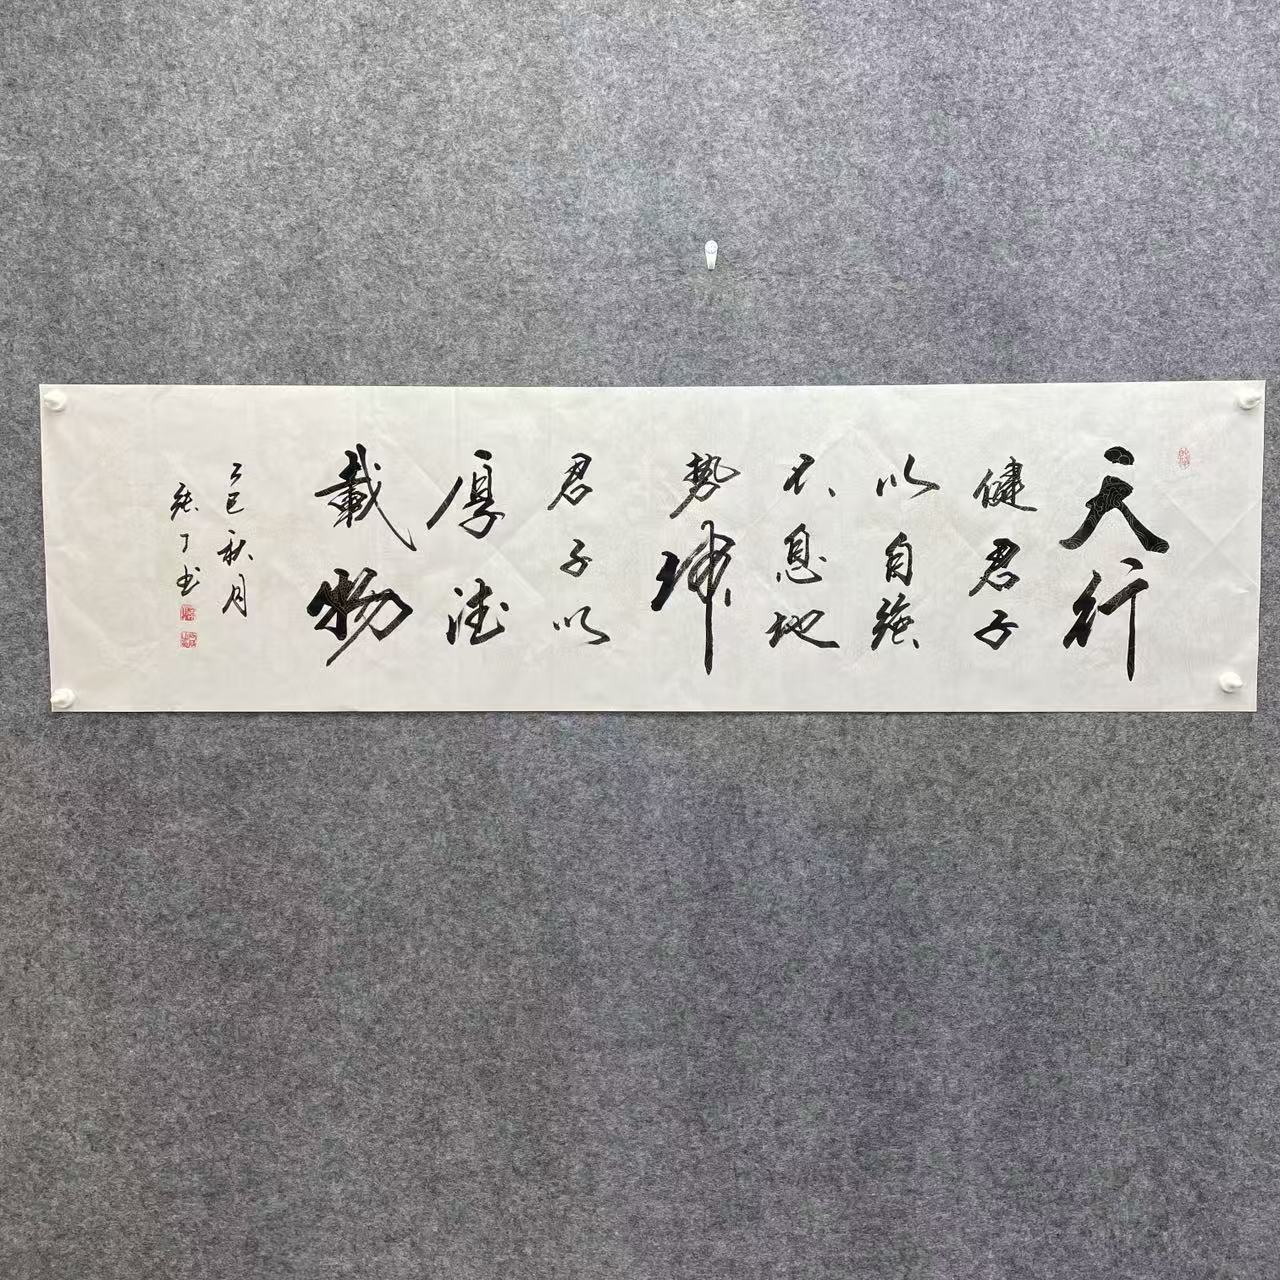 天行
健君子
以自強
不息地
勢坤
君子以
厚德
載物
乙巳秋月
丁书